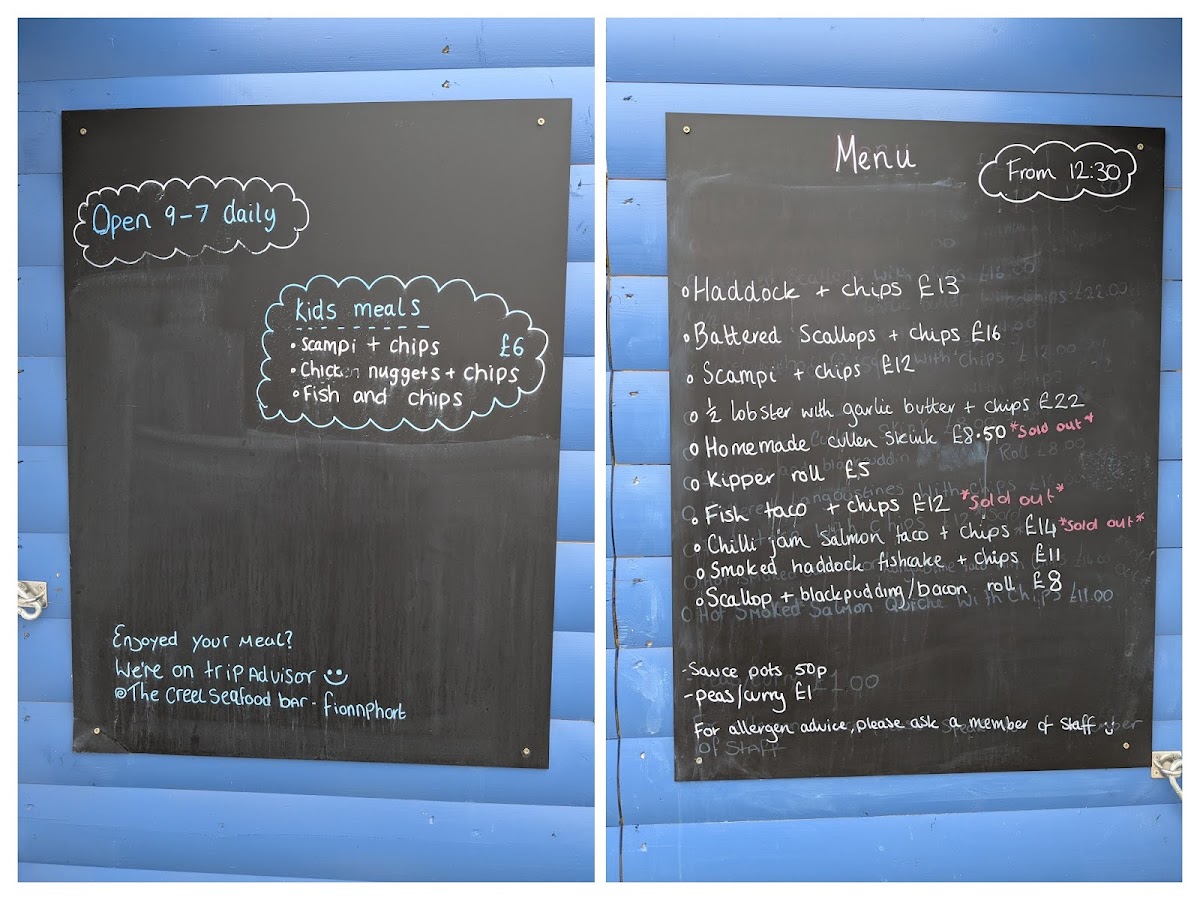 Open 9-7 daily
Kids meals
• Scampi + chips £6
• Chicken nuggets + chips
• Fish and chips
Enjoyed your meal?
We're on tripadvisor
@The Creel Seafood bar - fionnphort
Menu
From 12:30
Haddock + chips £13
Battered Scallops + chips £16
Scampi + chips £12
½ lobster with garlic butter + chips £22
Homemade cullen skink £8.50 *Sold out*
Kipper roll £5
Fish taco + chips £12 *Sold out*
Chilli jam Salmon taco + chips £14 *Sold out*
Smoked haddock fishcake + chips £11
Scallop + blackpudding/bacon roll £8
Hot Smoked Salmon Quiche With Chips £11.00
-Sauce pots 50p
-peas/curry £1
£1.00
For allergen advice, please ask a member of staff
of Staff